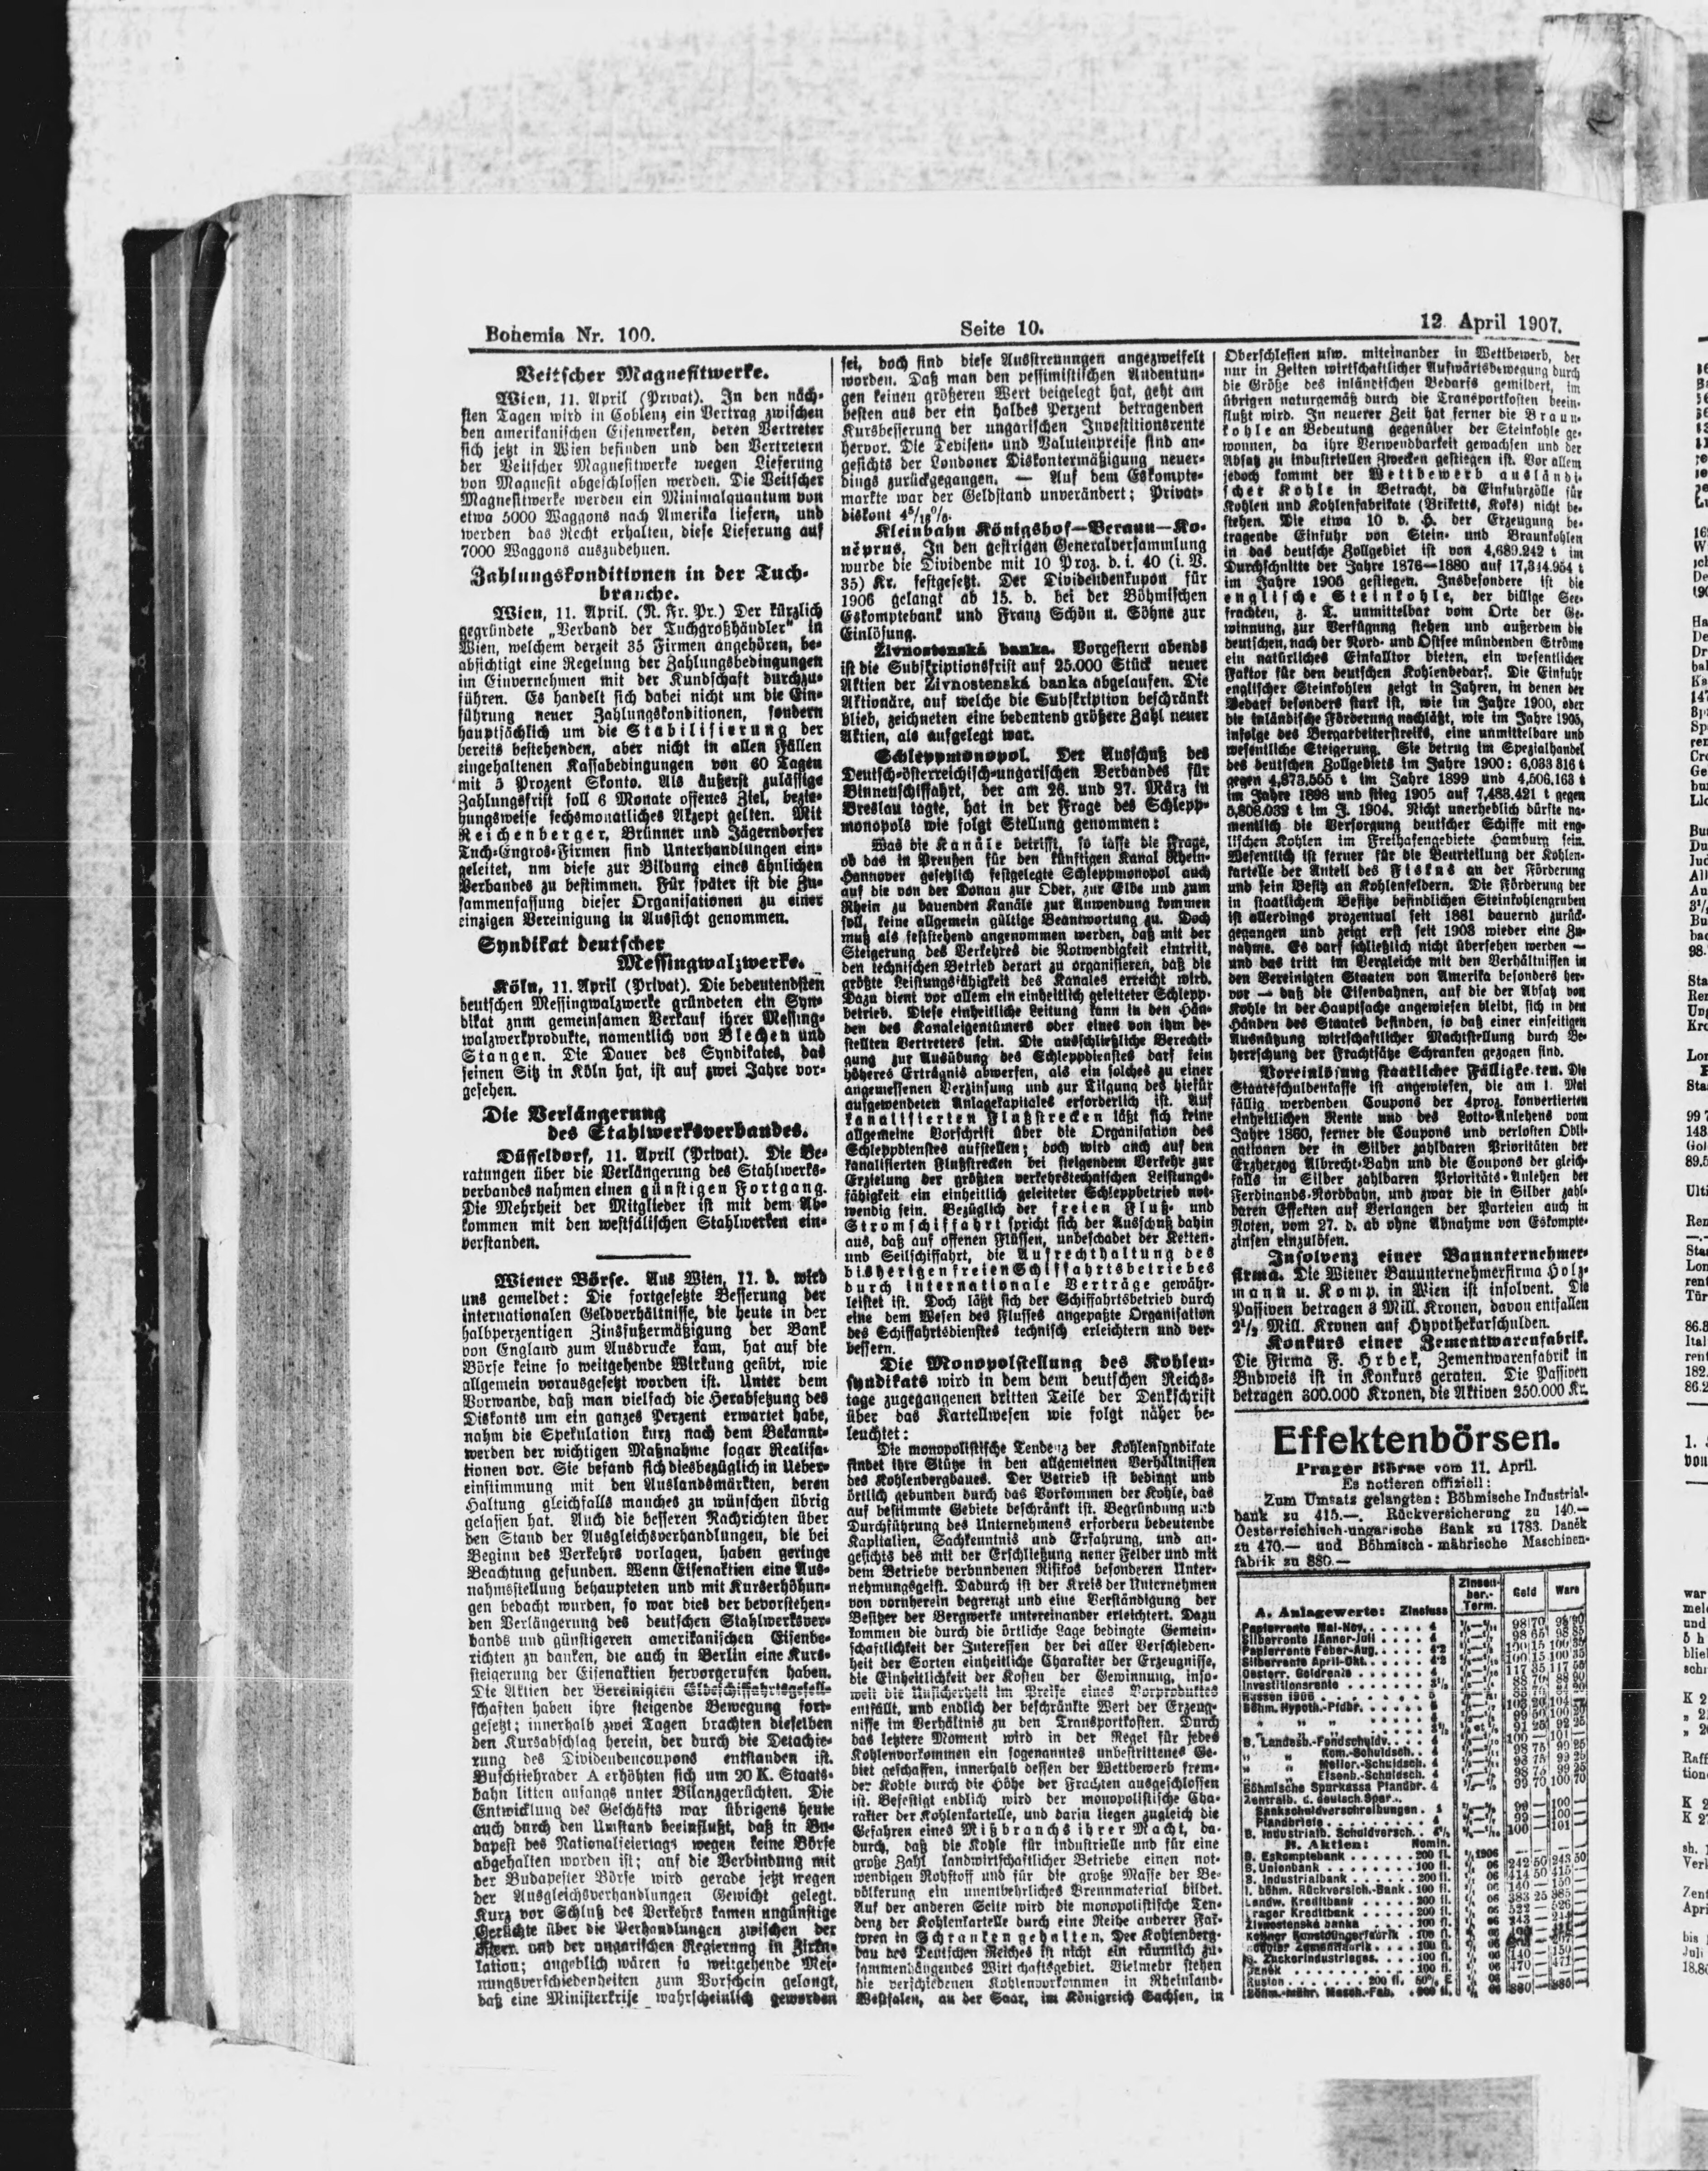 Bohemia Nr. 100.
Seite 10.
12 April 1907.
Veitscher Magnesitwerke.
Wien, 11. April (Privat). In den näch-
sten Tagen wird in Coblenz ein Vertrag zwischen
den amerikanischen Eisenwerken, deren Vertreter
sich jetzt in Wien befinden und den Vertretern
der Veitscher Magnesitwerke wegen Lieferung
von Magnesit abgeschlossen werden. Die Veitscher
Magnesitwerke werden ein Minimalquantum von
etwa 5000 Waggons nach Amerika liefern, und
werden das Recht erhalten, diese Lieferung auf
7000 Waggons auszudehnen.
Zahlungskonditionen in der Tuch-
branche.
Wien, 11. April. (N. Fr. Pr.) Der kürzlich
gegründete „Verband der Tuchgroßhändler" in
Wien, welchem derzeit 35 Firmen angehören, be-
absichtigt eine Regelung der Zahlungsbedingungen
im Einvernehmen mit der Kundschaft durchzu-
führen. Es handelt sich dabei nicht um die Ein-
führung neuer Zahlungskonditionen, sondern
hauptsächlich um die Stabilisierung der
bereits bestehenden, aber nicht in allen Fällen
eingehaltenen Kassabedingungen von 60 Tagen
mit 5 Prozent Skonto. Als äußerst zulässige
Zahlungsfrist soll 6 Monate offenes Ziel, bezie-
hungsweise sechsmonatliches Akzept gelten. Mit
Reichenberger, Brünner und Jägerndorfer
Tuch-Engros-Firmen sind Unterhandlungen ein-
geleitet, um diese zur Bildung eines ähnlichen
Verbandes zu bestimmen. Für später ist die Zu-
sammenfassung dieser Organisationen zu einer
einzigen Vereinigung in Aussicht genommen.
Syndikat deutscher
Messingwalzwerke.
Köln, 11. April (Privat). Die bedeutendsten
deutschen Messingwalzwerke gründeten ein Syn-
dikat zum gemeinsamen Verkauf ihrer Messing-
walzwerkprodukte, namentlich von Blechen und
Stangen. Die Dauer des Syndikates, das
seinen Sitz in Köln hat, ist auf zwei Jahre vor-
gesehen.
Die Verlängerung
des Stahlwerksverbandes.
Düsseldorf, 11. April (Privat). Die Be-
ratungen über die Verlängerung des Stahlwerks-
verbandes nahmen einen günstigen Fortgang.
Die Mehrheit der Mitglieder ist mit dem Ab-
kommen mit den westfälischen Stahlwerken ein-
verstanden.
Wiener Börse. Aus Wien, 11. d. wird
uns gemeldet: Die fortgesetzte Besserung der
internationalen Geldverhältnisse, die heute in der
halbperzentigen Zinsfußermäßigung der Bank
von England zum Ausdrucke kam, hat auf die
Börse keine so weitgehende Wirkung geübt, wie
allgemein vorausgesetzt worden ist. Unter dem
Vorwande, daß man vielfach die Herabsetzung des
Diskonts um ein ganzes Perzent erwartet habe,
nahm die Spekulation kurz nach dem Bekannt-
werden der wichtigen Maßnahme sogar Realisa-
tionen vor. Sie befand sich diesbezüglich in Ueber-
einstimmung mit den Auslandsmärkten, deren
Haltung gleichfalls manches zu wünschen übrig
gelassen hat. Auch die besseren Nachrichten über
den Stand der Ausgleichsverhandlungen, die bei
Beginn des Verkehrs vorlagen, haben geringe
Beachtung gefunden. Wenn Eisenaktien eine Aus-
nahmsstellung behaupteten und mit Kurserhöhun-
gen bedacht wurden, so war dies der bevorstehen-
den Verlängerung des deutschen Stahlwerksver-
bands und günstigeren amerikanischen Eisenbe-
richten zu danken, die auch in Berlin eine Kurs-
steigerung der Eisenaktien hervorgerufen haben.
Die Aktien der Vereinigten Elbeschiffahrtsgesell-
schaften haben ihre steigende Bewegung fort-
gesetzt; innerhalb zwei Tagen brachten dieselben
den Kursabschlag herein, der durch die Detachie-
rung des Dividendencoupons entstanden ist.
Buschtiehrader A erhöhten sich um 20 K. Staats-
bahn litten anfangs unter Bilanzgerüchten. Die
Entwicklung des Geschäfts war übrigens heute
auch durch den Umstand beeinflußt, daß in Bu-
dapest des Nationalfeiertags wegen keine Börse
abgehalten worden ist; auf die Verbindung mit
der Budapester Börse wird gerade jetzt wegen
der Ausgleichsverhandlungen Gewicht gelegt.
Kurz vor Schluß des Verkehrs kamen ungünstige
Gerüchte über die Verhandlungen zwischen der
österr. und der ungarischen Regierung in Zirku-
lation; angeblich wären so weitgehende Mei-
nungsverschiedenheiten zum Vorschein gelangt,
daß eine Ministerkrise wahrscheinlich geworden
sei, doch sind diese Ausstreuungen angezweifelt
worden. Daß man den pessimistischen Andeutun-
gen keinen größeren Wert beigelegt hat, geht am
besten aus der ein halbes Perzent betragenden
Kursbesserung der ungarischen Investitionsrente
hervor. Die Devisen- und Valutenpreise sind an-
gesichts der Londoner Diskontermäßigung neuer-
dings zurückgegangen. — Auf dem Eskompte-
markte war der Geldstand unverändert; Privat-
diskont 4⁵/₁₆%.
Kleinbahn Königshof—Beraun—Ko-
nĕprus. In den gestrigen Generalversammlung
wurde die Dividende mit 10 Proz. d. i. 40 (i. V.
35) Kr. festgesetzt. Der Dividendenkupon für
1906 gelangt ab 15. d. bei der Böhmischen
Eskomptebank und Franz Schön u. Söhne zur
Einlösung.
Živnostenská banka. Vorgestern abends
ist die Subskriptionsfrist auf 25.000 Stück neuer
Aktien der Živnostenská banka abgelaufen. Die
Aktionäre, auf welche die Subskription beschränkt
blieb, zeichneten eine bedeutend größere Zahl neuer
Aktien, als aufgelegt war.
Schleppmonopol. Der Ausschuß des
Deutsch-österreichisch-ungarischen Verbandes für
Binnenschiffahrt, der am 26. und 27. März in
Breslau tagte, hat in der Frage des Schlepp-
monopols wie folgt Stellung genommen:
Was die Kanäle betrifft, so lasse die Frage,
ob das in Preußen für den künftigen Kanal Rhein-
Hannover gesetzlich festgelegte Schleppmonopol auch
auf die von der Donau zur Oder, zur Elbe und zum
Rhein zu bauenden Kanäle zur Anwendung kommen
soll, keine allgemein gültige Beantwortung zu. Doch
muß als feststehend angenommen werden, daß mit der
Steigerung des Verkehres die Notwendigkeit eintritt,
den technischen Betrieb derart zu organisieren, daß die
größte Leistungsfähigkeit des Kanales erreicht wird.
Dazu dient vor allem ein einheitlich geleiteter Schlepp-
betrieb. Diese einheitliche Leitung kann in den Hän-
den des Kanaleigentümers oder eines von ihm be-
stellten Vertreters sein. Die ausschließliche Berechti-
gung zur Ausübung des Schleppdienstes darf kein
höheres Erträgnis abwerfen, als ein solches zu einer
angemessenen Verzinsung und zur Tilgung des hiefür
aufgewendeten Anlagekapitales erforderlich ist. Auf
kanalisierten Flußstrecken läßt sich keine
allgemeine Vorschrift über die Organisation des
Schleppdienstes aufstellen; doch wird auch auf den
kanalisierten Flußstrecken bei steigendem Verkehr zur
Erzielung der größten verkehrstechnischen Leistungs-
fähigkeit ein einheitlich geleiteter Schleppbetrieb not-
wendig sein. Bezüglich der freien Fluß- und
Stromschiffahrt spricht sich der Ausschuß dahin
aus, daß auf offenen Flüssen, unbeschadet der Ketten-
und Seilschiffahrt, die Aufrechthaltung des
bisherigen freien Schiffahrtsbetriebes
durch internationale Verträge gewähr-
leistet ist. Doch läßt sich der Schiffahrtsbetrieb durch
eine dem Wesen des Flusses angepaßte Organisation
des Schiffahrtsdienstes technisch erleichtern und ver-
bessern.
Die Monopolstellung des Kohlen-
syndikats wird in dem dem deutschen Reichs-
tage zugegangenen dritten Teile der Denkschrift
über das Kartellwesen wie folgt näher be-
leuchtet:
Die monopolistische Tendenz der Kohlensyndikate
findet ihre Stütze in den allgemeinen Verhältnissen
des Kohlenbergbaues. Der Betrieb ist bedingt und
örtlich gebunden durch das Vorkommen der Kohle, das
auf bestimmte Gebiete beschränkt ist. Begründung und
Durchführung des Unternehmens erfordern bedeutende
Kapitalien, Sachkenntnis und Erfahrung, und an-
gesichts des mit der Erschließung neuer Felder und mit
dem Betriebe verbundenen Risikos besonderen Unter-
nehmungsgeist. Dadurch ist der Kreis der Unternehmen
von vornherein begrenzt und eine Verständigung der
Besitzer der Bergwerke untereinander erleichtert. Dazu
kommen die durch die örtliche Lage bedingte Gemein-
schaftlichkeit der Interessen der bei aller Verschieden-
heit der Sorten einheitliche Charakter der Erzeugnisse,
die Einheitlichkeit der Kosten der Gewinnung, inso-
weit die Unsicherheit im Preise eines Vorproduktes
entfällt, und endlich der beschränkte Wert der Erzeug-
nisse im Verhältnis zu den Transportkosten. Durch
das letztere Moment wird in der Regel für jedes
Kohlenvorkommen ein sogenanntes unbestrittenes Ge-
biet geschaffen, innerhalb dessen der Wettbewerb frem-
der Kohle durch die Höhe der Frachten ausgeschlossen
ist. Befestigt endlich wird der monopolistische Cha-
rakter der Kohlenkartelle, und darin liegen zugleich die
Gefahren eines Mißbrauchs ihrer Macht, da-
durch, daß die Kohle für industrielle und für eine
große Zahl landwirtschaftlicher Betriebe einen not-
wendigen Rohstoff und für die große Masse der Be-
völkerung ein unentbehrliches Brennmaterial bildet.
Auf der anderen Seite wird die monopolistische Ten-
denz der Kohlenkartelle durch eine Reihe anderer Fak-
toren in Schranken gehalten. Der Kohlenberg-
bau des Deutschen Reiches ist nicht ein räumlich zu-
sammenhängendes Wirtschaftsgebiet. Vielmehr stehen
die verschiedenen Kohlenvorkommen in Rheinland-
Westfalen, an der Saar, im Königreich Sachsen, in
Oberschlesien usw. miteinander in Wettbewerb, der
nur in Zeiten wirtschaftlicher Aufwärtsbewegung durch
die Größe des inländischen Bedarfs gemildert, im
übrigen naturgemäß durch die Transportkosten beein-
flußt wird. In neuerer Zeit hat ferner die Braun-
kohle an Bedeutung gegenüber der Steinkohle ge-
wonnen, da ihre Verwendbarkeit gewachsen und der
Absatz zu industriellen Zwecken gestiegen ist. Vor allem
jedoch kommt der Wettbewerb ausländi-
scher Kohle in Betracht, da Einfuhrzölle für
Kohlen und Kohlenfabrikate (Briketts, Koks) nicht be-
stehen. Die etwa 10 v. H. der Erzeugung be-
tragende Einfuhr von Stein- und Braunkohlen
in das deutsche Zollgebiet ist von 4,689.242 t im
Durchschnitte der Jahre 1876—1880 auf 17,314.954 t
im Jahre 1905 gestiegen. Insbesondere ist die
englische Steinkohle, der billige See-
frachten, z. T. unmittelbar vom Orte der Ge-
winnung, zur Verfügung stehen und außerdem die
deutschen, nach der Nord- und Ostsee mündenden Ströme
ein natürliches Einfalltor bieten, ein wesentlicher
Faktor für den deutschen Kohlenbedarf. Die Einfuhr
englischer Steinkohlen zeigt in Jahren, in denen der
Bedarf besonders stark ist, wie im Jahre 1900, oder
die inländische Förderung nachläßt, wie im Jahre 1905,
infolge des Bergarbeiterstreiks, eine unmittelbare und
wesentliche Steigerung. Sie betrug im Spezialhandel
des deutschen Zollgebiets im Jahre 1900: 6,033 816 t
gegen 4,873,555 t im Jahre 1899 und 4,506,163 t
im Jahre 1898 und stieg 1905 auf 7,483.421 t gegen
5,808.032 t im J. 1904. Nicht unerheblich dürfte na-
mentlich die Versorgung deutscher Schiffe mit eng-
lischen Kohlen im Freihafengebiete Hamburg sein.
Wesentlich ist ferner für die Beurteilung der Kohlen-
kartelle der Anteil des Fiskus an der Förderung
und sein Besitz an Kohlenfeldern. Die Förderung der
in staatlichem Besitze befindlichen Steinkohlengruben
ist allerdings prozentual seit 1881 dauernd zurück-
gegangen und zeigt erst seit 1903 wieder eine Zu-
nahme. Es darf schließlich nicht übersehen werden —
und das tritt im Vergleiche mit den Verhältnissen in
den Vereinigten Staaten von Amerika besonders her-
vor — daß die Eisenbahnen, auf die der Absatz von
Kohle in der Hauptsache angewiesen bleibt, sich in den
Händen des Staates befinden, so daß einer einseitigen
Ausnützung wirtschaftlicher Machtstellung durch Be-
herrschung der Frachtsätze Schranken gezogen sind.
Voreinlösung staatlicher Fälligkeiten. Die
Staatsschuldenkasse ist angewiesen, die am 1. Mai
fällig werdenden Coupons der 4proz. konvertierten
einheitlichen Rente und des Lotto-Anlehens vom
Jahre 1860, ferner die Coupons und verlosten Obli-
gationen der in Silber zahlbaren Prioritäten der
Erzherzog Albrecht-Bahn und die Coupons der gleich-
falls in Silber zahlbaren Prioritäts-Anlehen der
Ferdinands-Nordbahn, und zwar die in Silber zahl-
baren Effekten auf Verlangen der Parteien auch in
Noten, vom 27. d. ab ohne Abnahme von Eskompte-
zinsen einzulösen.
Insolvenz einer Bauunternehmer-
firma. Die Wiener Bauunternehmerfirma Holz-
mann u. Komp. in Wien ist insolvent. Die
Passiven betragen 3 Mill. Kronen, davon entfallen
2¹/₂ Mill. Kronen auf Hypothekarschulden.
Konkurs einer Zementwarenfabrik.
Die Firma F. Hrbek, Zementwarenfabrik in
Budweis ist in Konkurs geraten. Die Passiven
betragen 300.000 Kronen, die Aktiven 250.000 Kr.
Effektenbörsen.
Prager Börse vom 11. April.
Es notieren offiziell:
Zum Umsatz gelangten: Böhmische Industrial-
bank zu 415.—. Rückversicherung zu 140.—
Oesterreichisch-ungarische Bank zu 1783. Daněk
zu 470.— und Böhmisch-mährische Maschinen-
fabrik zu 880.—
A. Anlagewerte: Zinsfuss
Zinsen-
ber.-
Term.
Geld
Ware
Papierrente Mai-Nov. 4
Silberrente Jänner-Juli 4
Papierrente Feber-Aug.
Silberrente April-Okt.
Oesterr. Goldrente 4
Investitionsrente
Russen 1906 5
Böhm. Hypoth.-Pfdbr.
B. Landesb.-Fondschuldv. 4
Kom.-Schuldsch. 4
Melior.-Schuldsch. 4
Eisenb.-Schuldsch. 4
Böhmische Sparkassa Pfandbr. 4
Zentralb. d. deutsch. Spar.
Bankschuldverschreibungen
Pfandbriefe
B. Industrialb. Schuldversch.
B. Aktien: Nomin.
B. Eskomptebank 200 fl.
B. Unionbank 100 fl.
B. Industrialbank 200 fl.
1. böhm. Rückversich.-Bank 100 fl.
Landw. Kreditbank 200 fl.
Prager Kreditbank 200 fl.
Živnostenská banka 100 fl.
B. Zuckerindustrieges. 100 fl.
Daněk 100 fl.
Ruston 200 fl.
Böhm.-Mähr. Masch.-Fab.